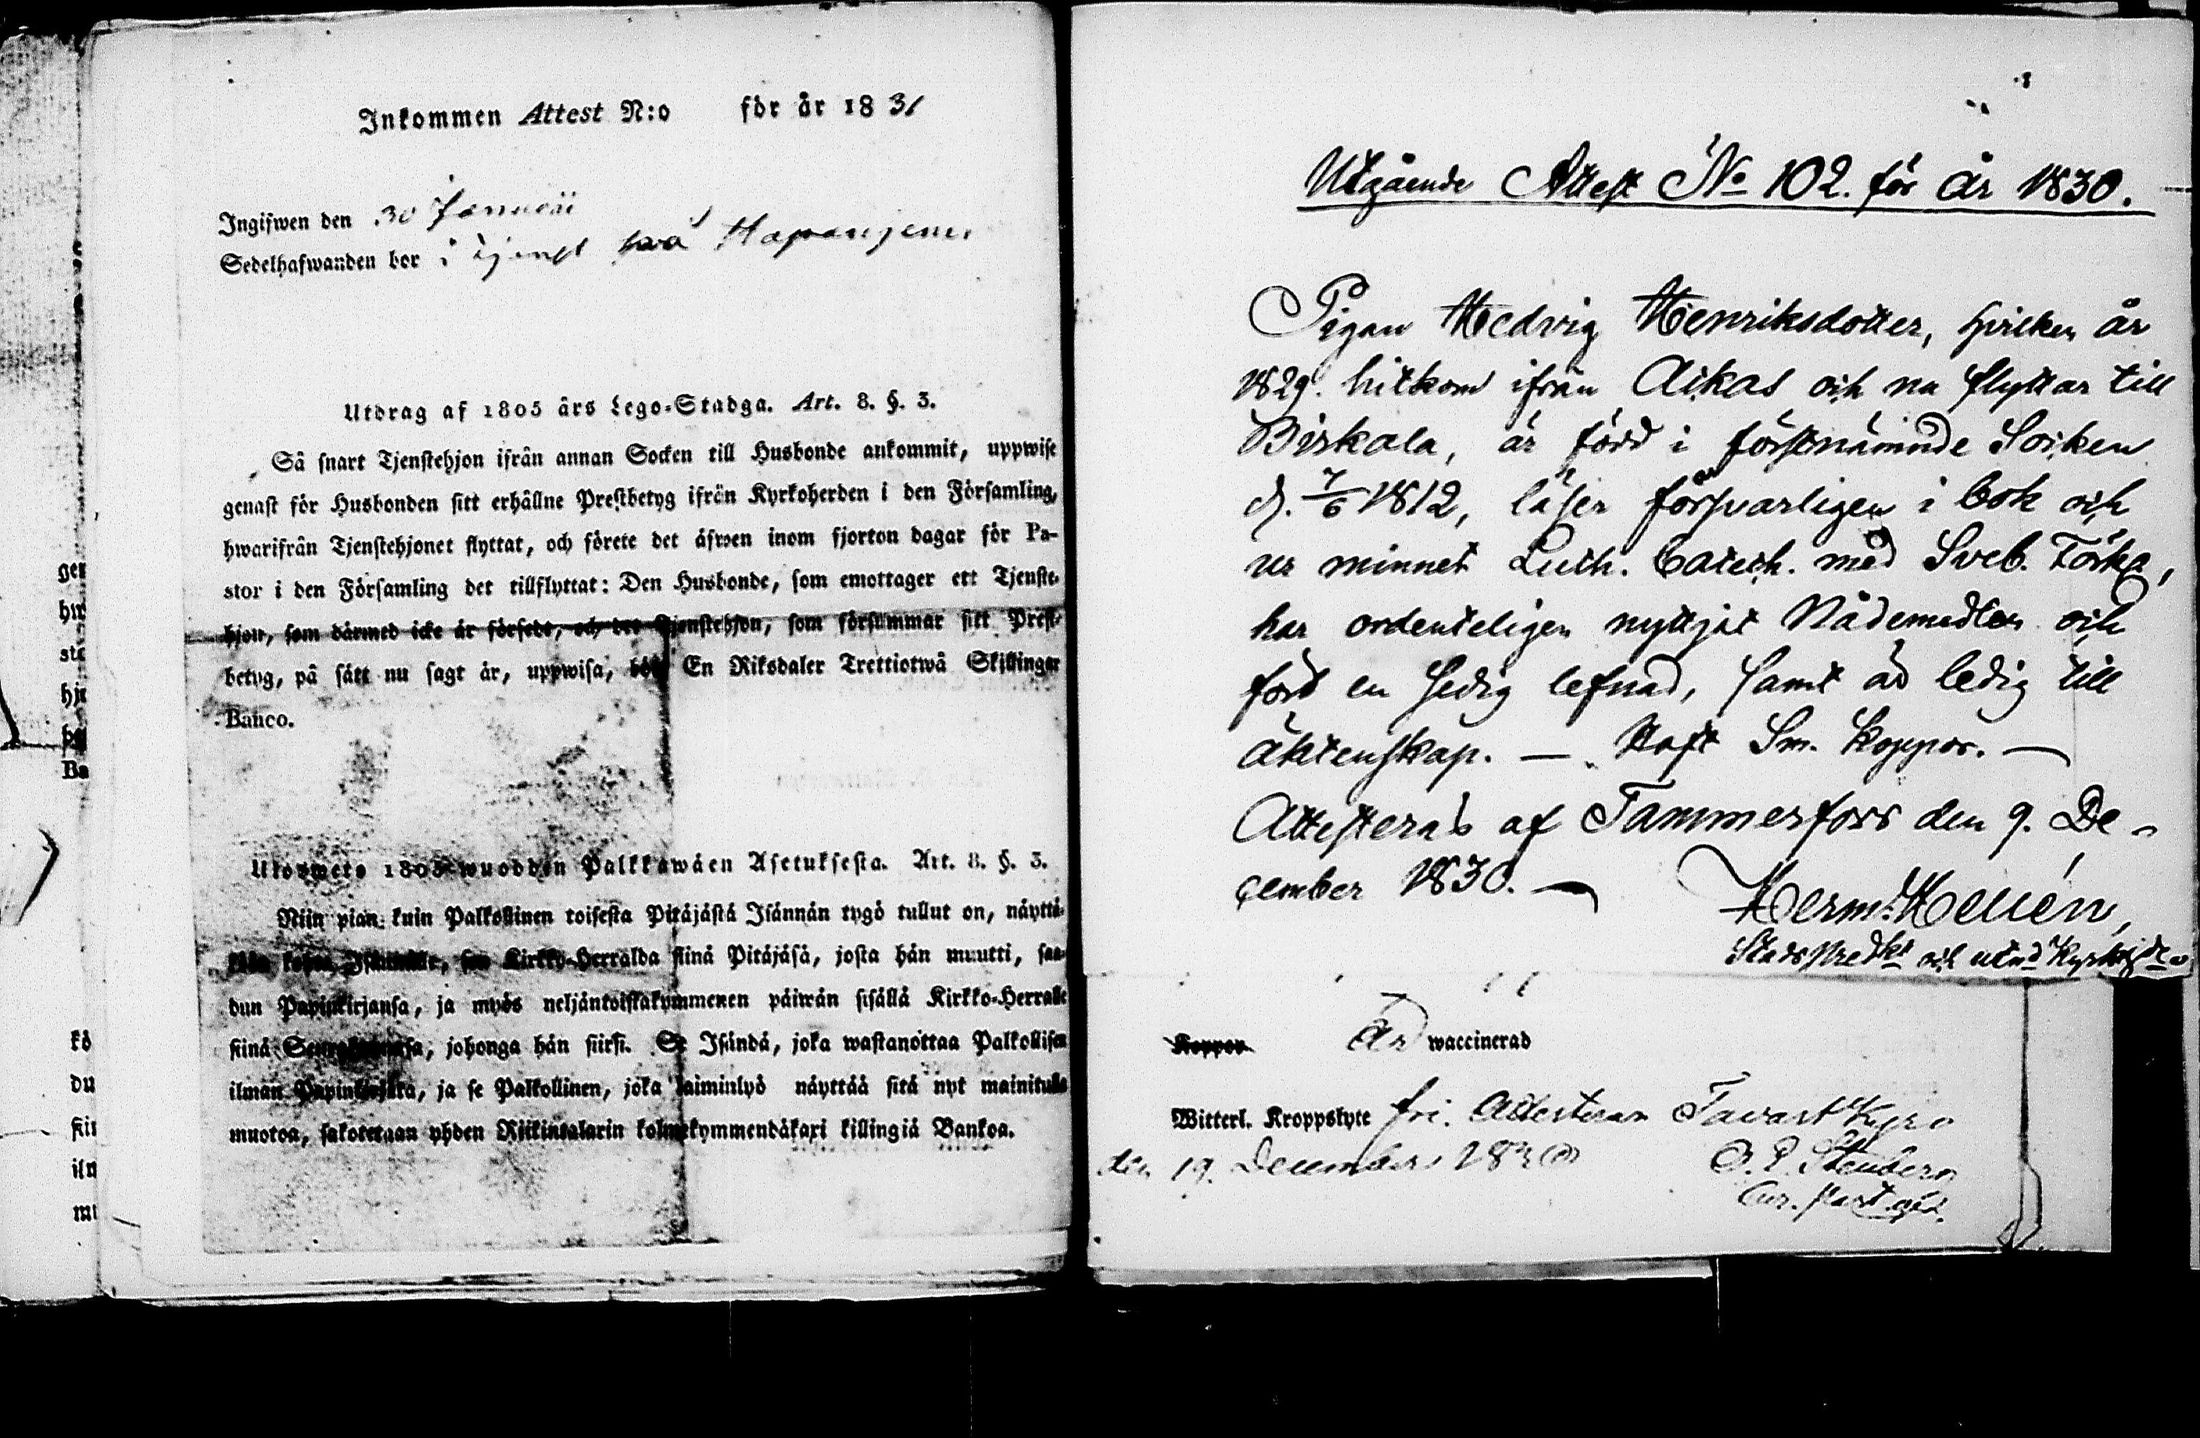 Inkommen Attest N:o för år 1831
Ingifwen den 30 Januari
Sedelhafwanden bor i tjenst på Haparjemi
Utdrag af 1805 års Lego-Stadga. Art. 8. §. 3.
Så snart Tjenstehjon ifrån annan Socken till Husbonde ankommit, uppwise
genast för Husbonden sitt erhållne Prestbetyg ifrån Kyrkoherden i den Församling,
hwarifrån Tjenstehjonet flyttat, och förete det åfwen inom fjorton dagar för Pa-
stor i den Församling det tillflyttat: Den Husbonde, som emottager ett Tjenste-
hjon, som dårmed icke år försedt, och det Tjenstehjon, som försummar sitt Prest-
betyg, på sått nu sagt år, uppwisa, böte En Riksdaler Trettiotwå Skillingar
Banco.
Utoswete 1805 wuodden Palkkawåen Asetuksesta. Art. 8. §. 3.
Niin pian kuin Palkollinen toisesta Pitåjåstå Isånnån tygö tullut on, nåyttå-
Kirkko-Herralda siinå Pitåjåså, josta hån muutti, saa-
dun Papinkirjansa, ja myös neljåntoistakymmenen påiwån sisållå Kirkko-Herralle
siinå Seurakunnassa, johonga hån siirsi. Se Isåndå, joka wastanottaa Palkollisen
ilman Papinkirjata, ja se Palkollinen, joka laiminlyö nåyttåå sitå nyt mainitulla
muotoa, sakotetaan yhden Riikintalarin kolmekymmendåkaxi killingiå Bankoa.
Utgående Attest No 102. för år 1830.
Pigan Hedvig Henriksdotter, hvilken år
1829. hitkom ifrån Akas och nu flyttar till
Birkala, är född i förstnämnde Socken
d. 7/6 1812, läser försvarligen i bok och
ur minnet Luth. Catech. med Sveb. Förkl,
har ordenteligen nyttjat Nådemedlen och
fört en sedig lefnad, samt är ledig till
äktenskap. — Haft Sm. Koppor. —
Attesteras af Tammerfors den 9. De-
cember 1830. —
Herm. Hellén,
Stads Predkt och utnd Kyrkohde
Koppor Är waccinerad
Witterl. Kroppslyte fri. Attesteras Tavastkyro
den 19. December 1830
C. P. Stenberg
Cur. Past. adj.